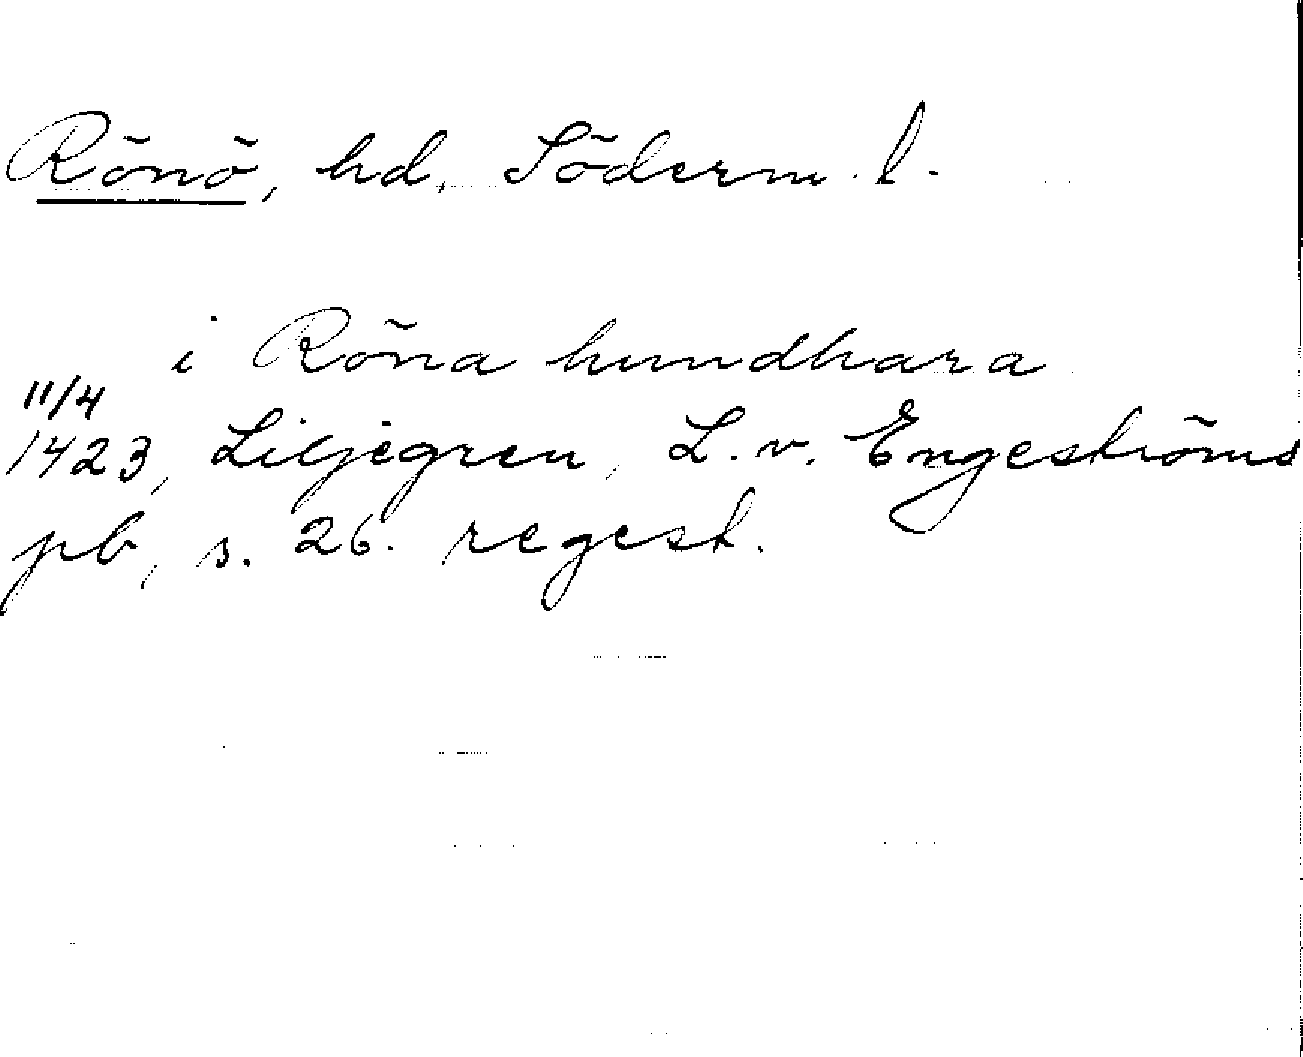 Rönö, hd, Söderm. l.
i Röna hundhara
11/4
1423, Liljegren, L. v. Engeströms
pb, s. 26. regest.